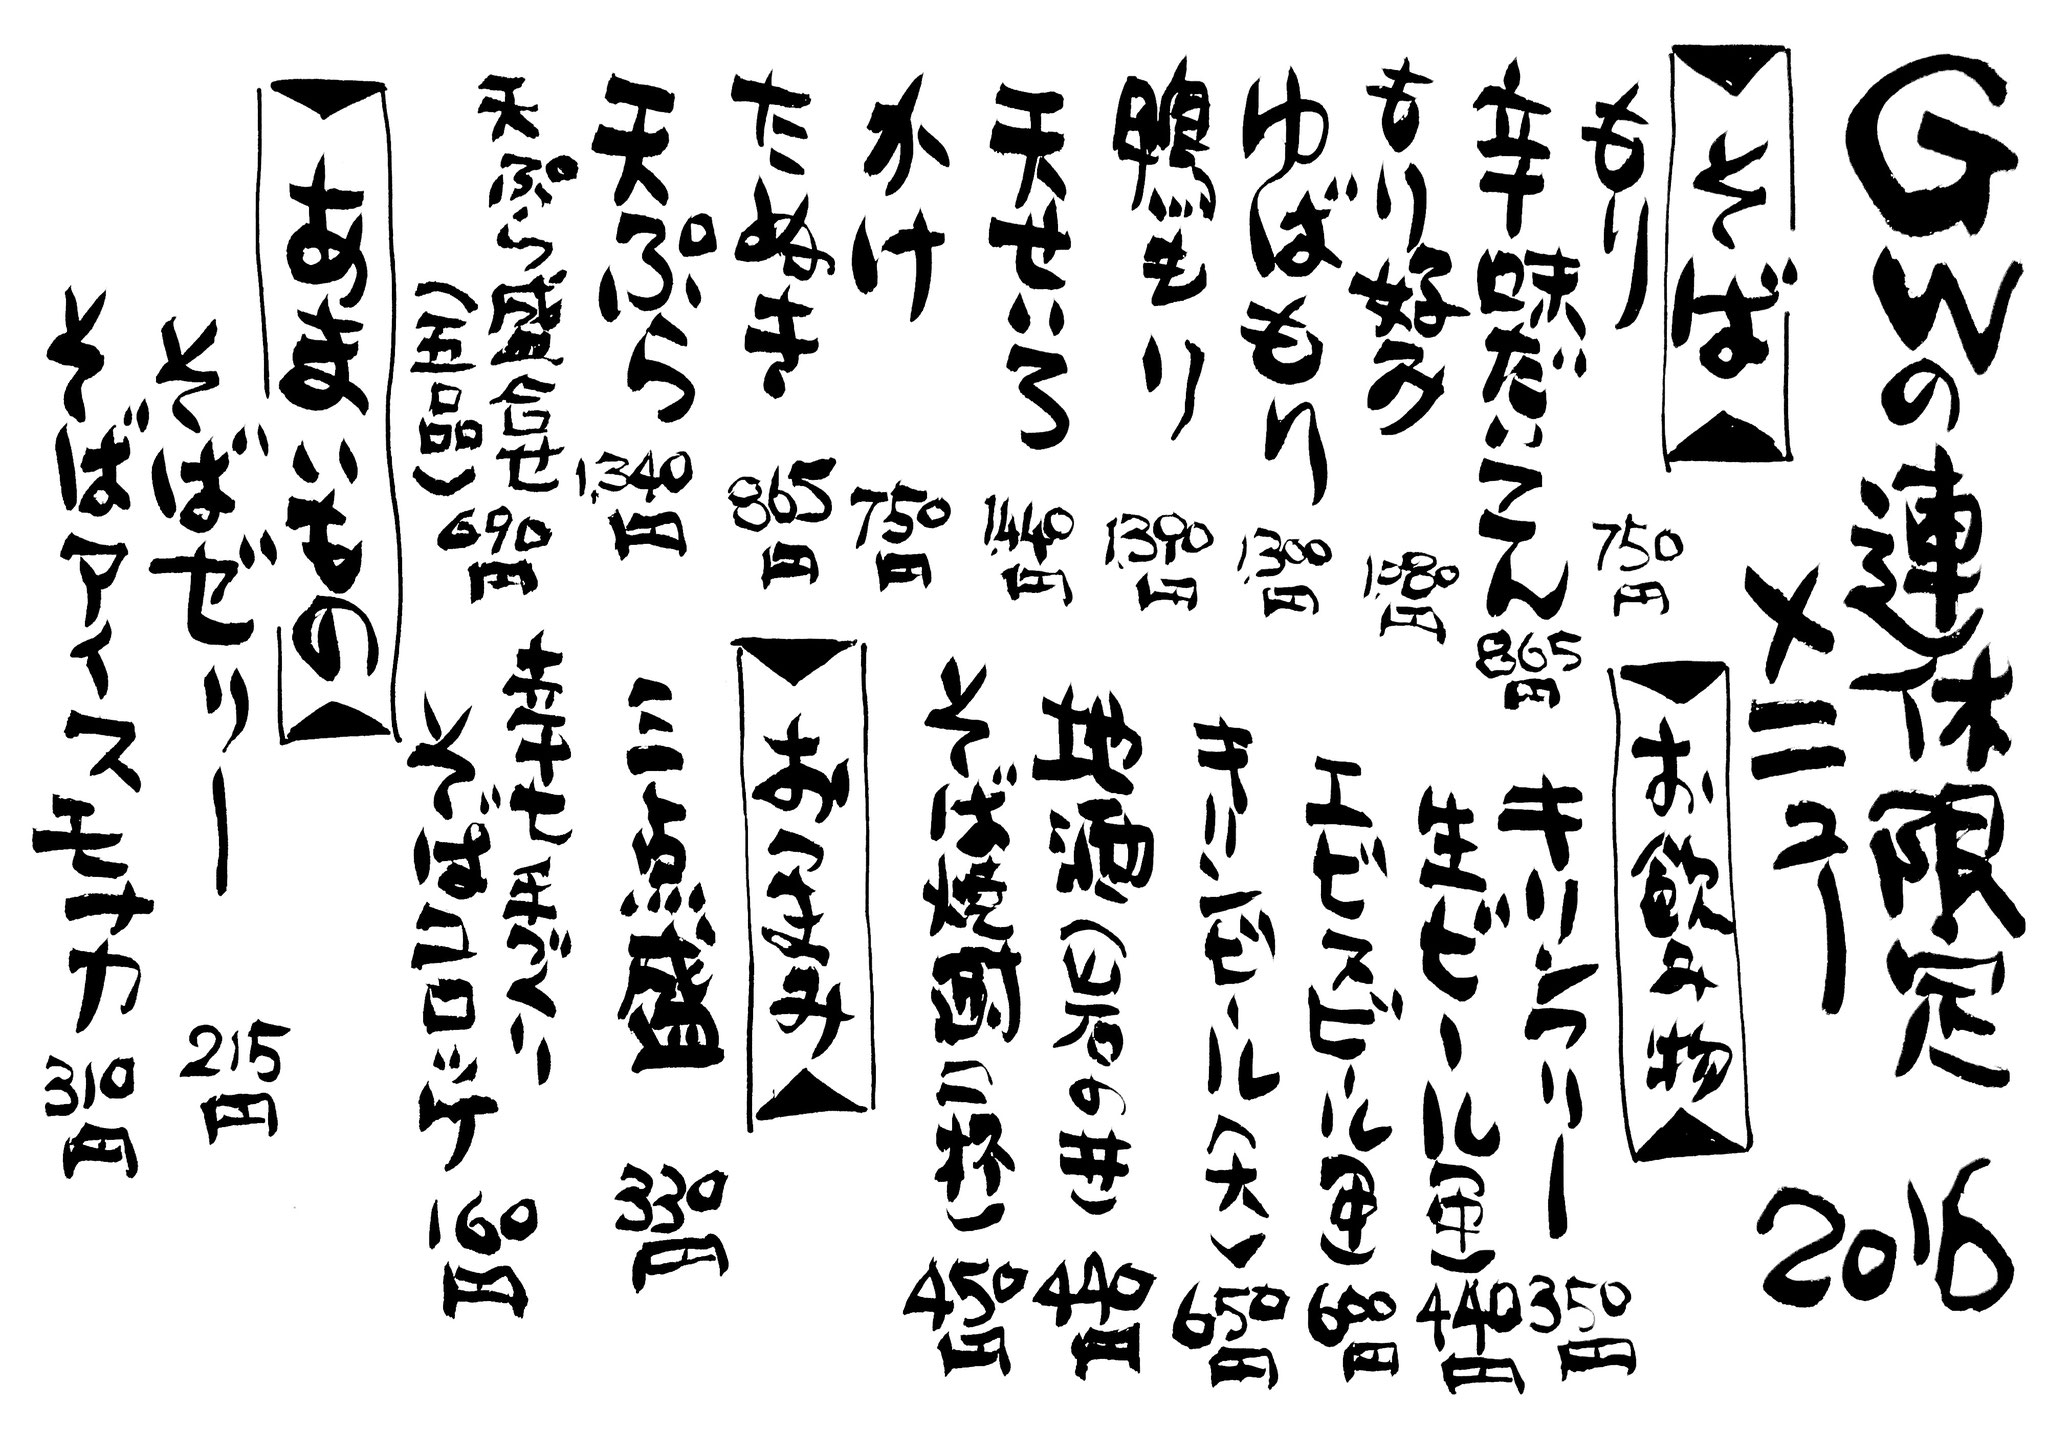 GWの連休限定
メニュー
2016
そば
もり 750円
辛味だいこん 865円
もり好み 1,080円
ゆばもり 1,300円
鴨もり 1,390円
天せいろ 1,440円
かけ 750円
たぬき 865円
天ぷら 1,340円
天ぷら盛合せ
(五品) 690円
お飲み物
キリンフリー 350円
生ビール(中) 440円
エビスビール(中) 600円
キリンビール(大) 650円
地酒(岩の井) 440円
そば焼酎(一杯) 450円
おつまみ
三点盛 330円
そばコロッケ 160円
あまいもの
そばゼリー 215円
そばアイスモナカ 310円